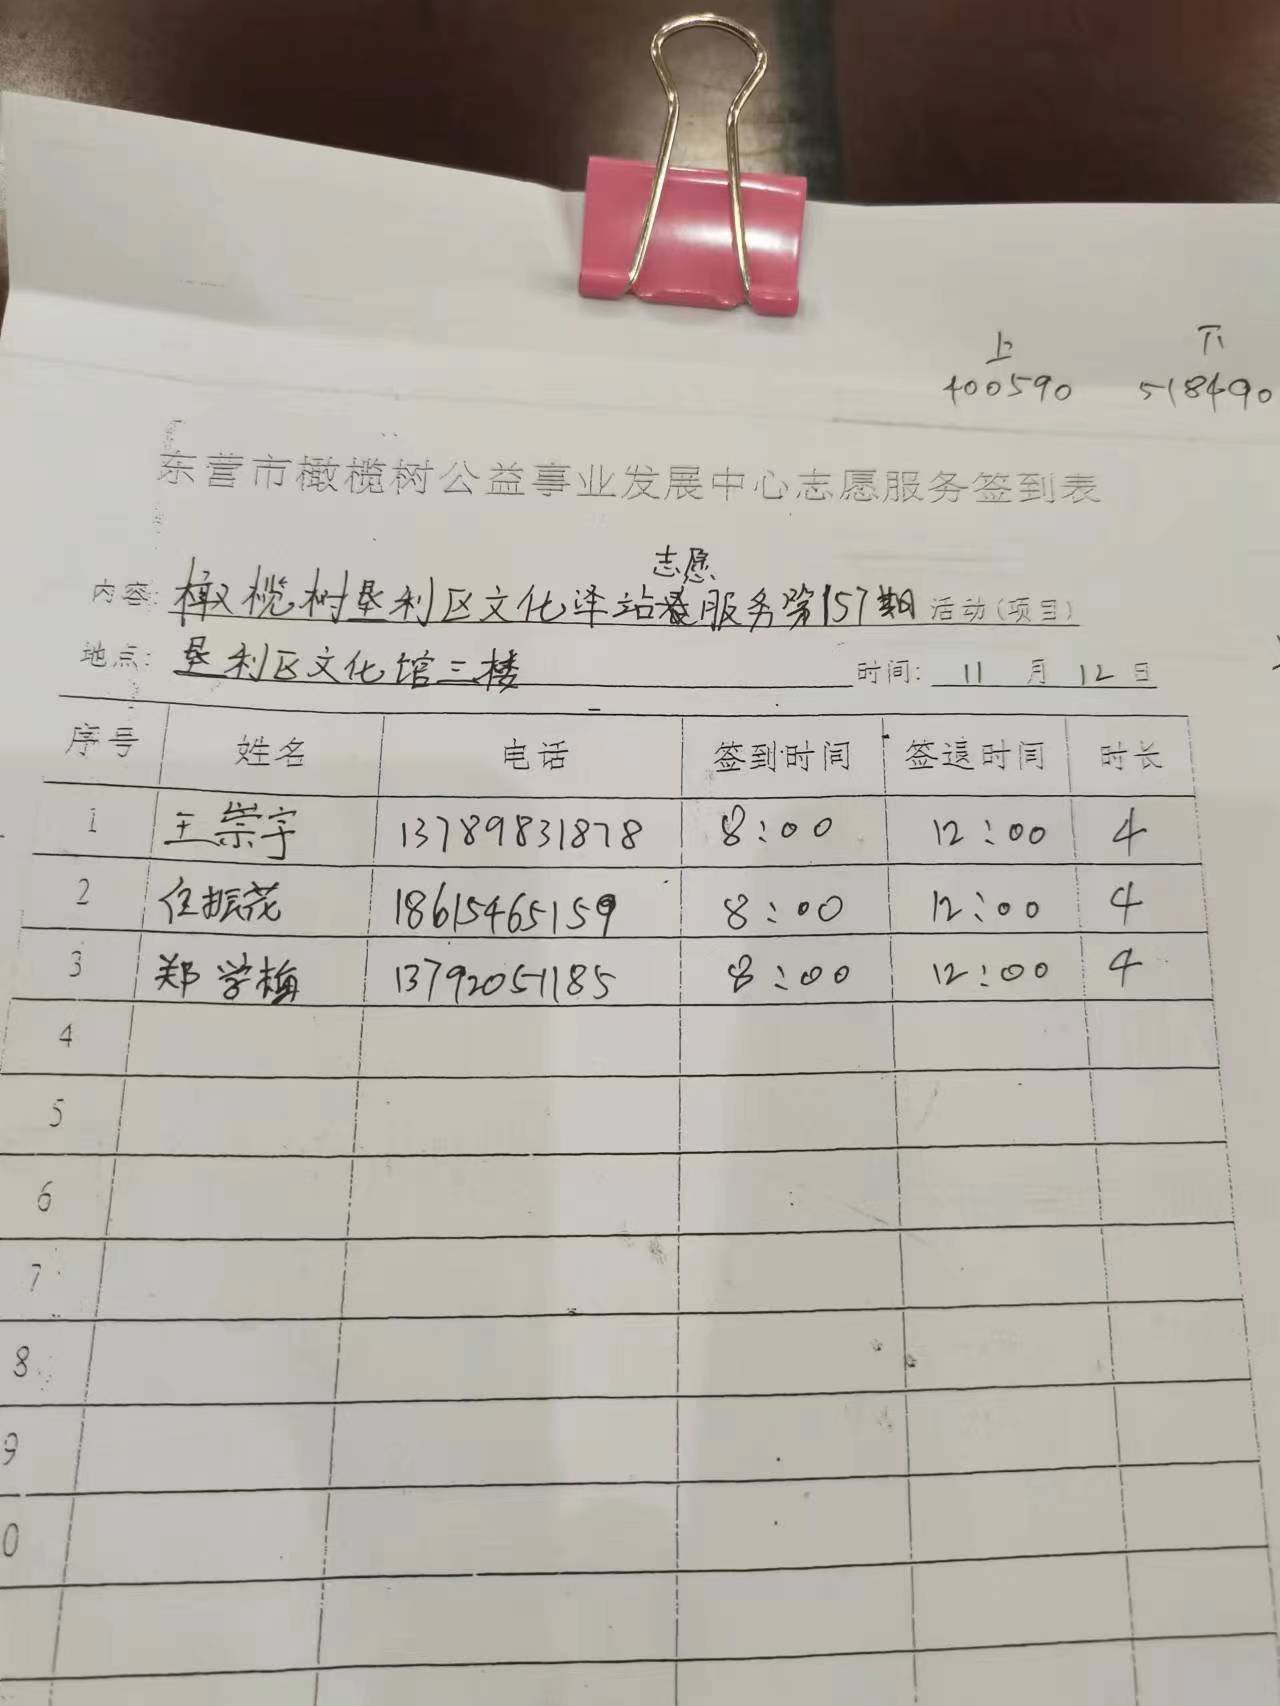 上 下
400590 518490
东营市橄榄树公益事业发展中心志愿服务签到表
志愿
内容: 橄榄树垦利区文化驿站服务第157期 活动(项目)
地点: 垦利区文化馆三楼 时间: 11 月 12 日
序号 姓名 电话 签到时间 签退时间 时长
1 王崇宇 13789831878 8:00 12:00 4
2 任振花 18615465159 8:00 12:00 4
3 郑学梅 13792051185 8:00 12:00 4
4
5
6
7
8
9
0